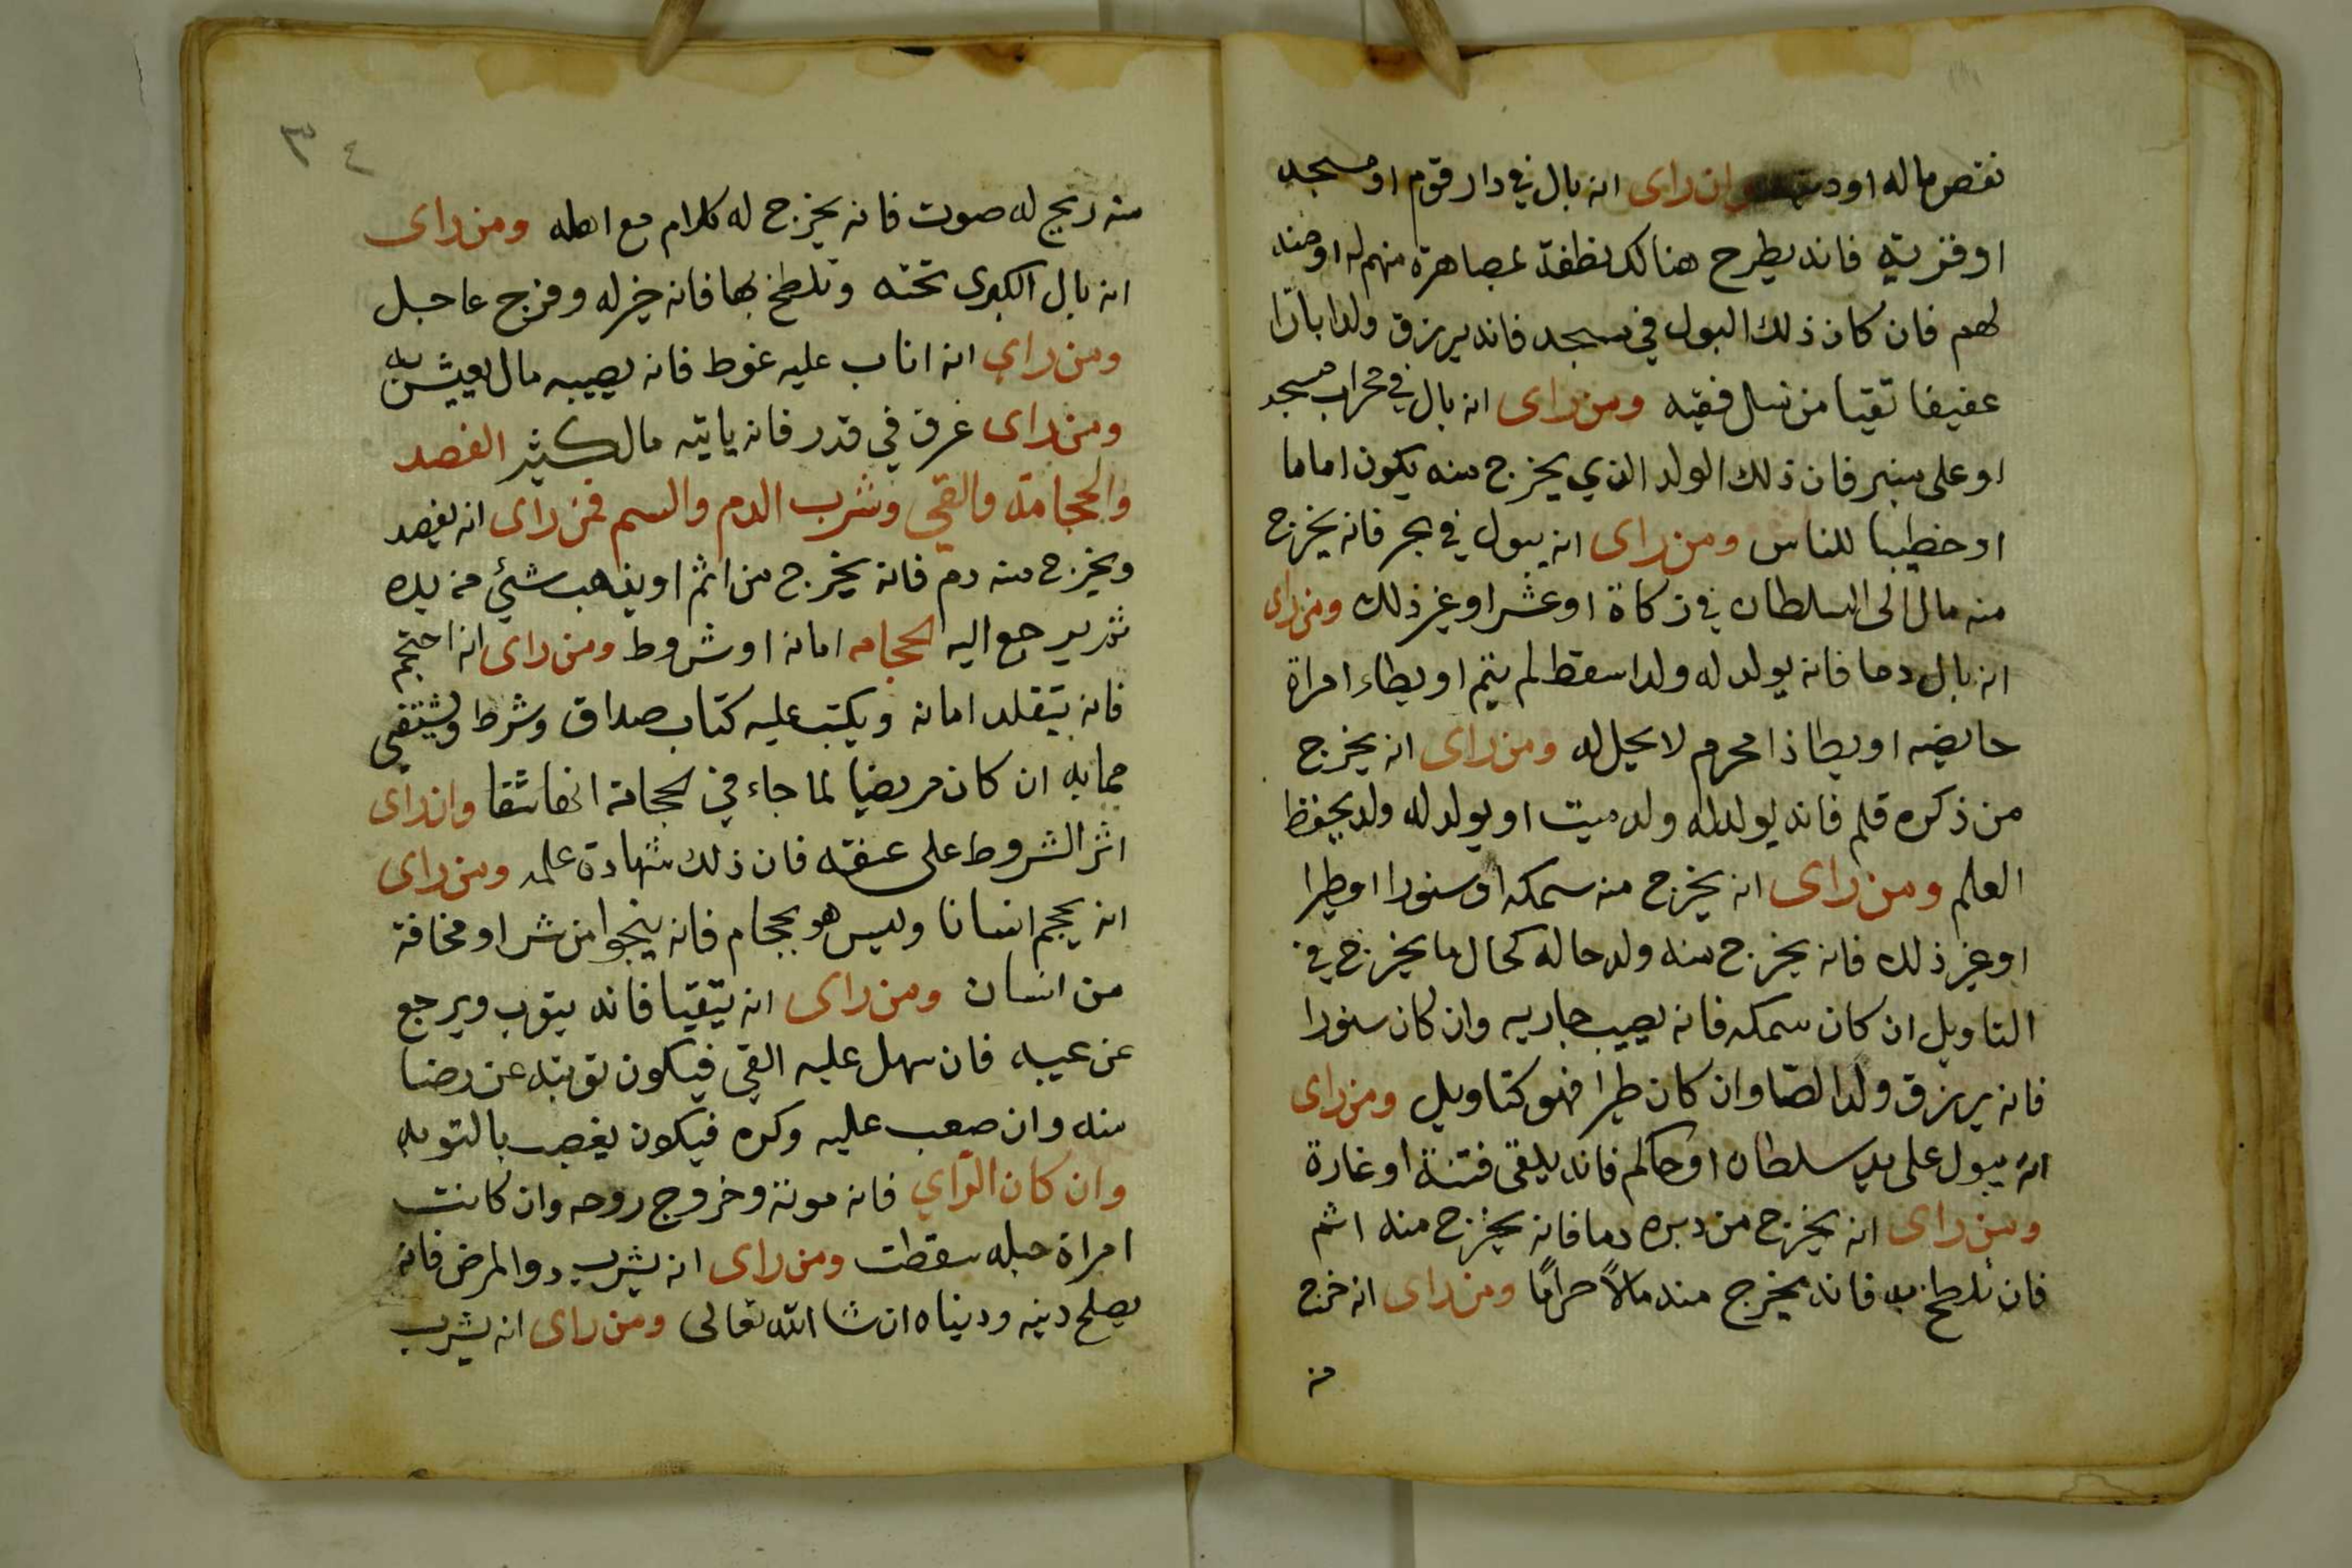 نقص ماله او وان راى انه بال في دار قوم او مسجد
او قريته فانه يطرح هنالك نطفة بمصاهرة منهم له او منه
لهم فان كان ذلك البول في مسجد فانه يرزق ولدا بارا
عفيفا تقيا من نسل فقيه ومن راى انه بال في محراب مسجد
او على منبر فان ذلك الولد الذي يخرج منه يكون اماما
او خطيبا للناس ومن راى انه يبول في بحر فانه يخرج
منه مال الى السلطان في زكاة او عشر او غير ذلك ومن راى
انه بال دما فانه يولد له ولدا سقط لم يتم او يطاء امراة
حايضه او يطا ذا محرم لا يحل له ومن راى انه يخرج
من ذكره قلم فانه يولد له ولد ميت او يولد له ولد يحفظ
العلم ومن راى انه يخرج منه سمكه او سنورا او طيرا
او غير ذلك فانه يخرج منه ولد حاله كحال ما يخرج في
التاويل ان كان سمكه فانه يصيب جاريه وان كان سنورا
فانه يرزق ولدا لصا وان كان طيرا فهو كتاويل ومن راى
انه يبول على يد سلطان او حاكم فانه يلقى فتنة او غارة
ومن راى انه يخرج من دبره دما فانه يخرج منه اثم
فان تلطخ به فانه يخرج منه مالاً حرامًا ومن راى انه خرج
منه
٣٤
منه ريح له صوت فانه يخرج له كلام مع اهله ومن راى
انه بال الكبرى تحته وتلطخ بها فانه خير له وفرج عاجل
ومن راي انه اناب عليه غوط فانه يصيبه مال يعيش به
ومن راى غرق في قدر فانه ياتيه مال كثير الفصد
والحجامة والقي وشرب الدم والسم فمن راى انه يفصد
ويخرج منه دم فانه يخرج من اثم او يذهب شئ من يده
ثم يرجع اليه الحجامه امانه او شروط ومن راى انه احتجم
فانه يتقلد امانه ويكتب عليه كتاب صداق وشرط ويشتفي
مما به ان كان مريضا لما جاء في الحجامة انها شفا وان راى
اثر الشروط على عنقه فان ذلك شهادة علمه ومن راى
انه يحجم انسانا وليس هو بحجام فانه ينجوا من شر او مخافة
من انسان ومن راى انه يتقيا فانه يتوب ويرجع
عن عيبه فان سهل عليه القي فيكون توبته عن رضا
منه وان صعب عليه وكره فيكون يغصب بالتوبه
وان كان الرّاي فانه موته وخروج روحه وان كانت
امراة حبله سقطت ومن راى انه يشرب دوا لمرض فانه
يصلح دينه ودنياه ان شا الله تعالى ومن راى انه يشرب